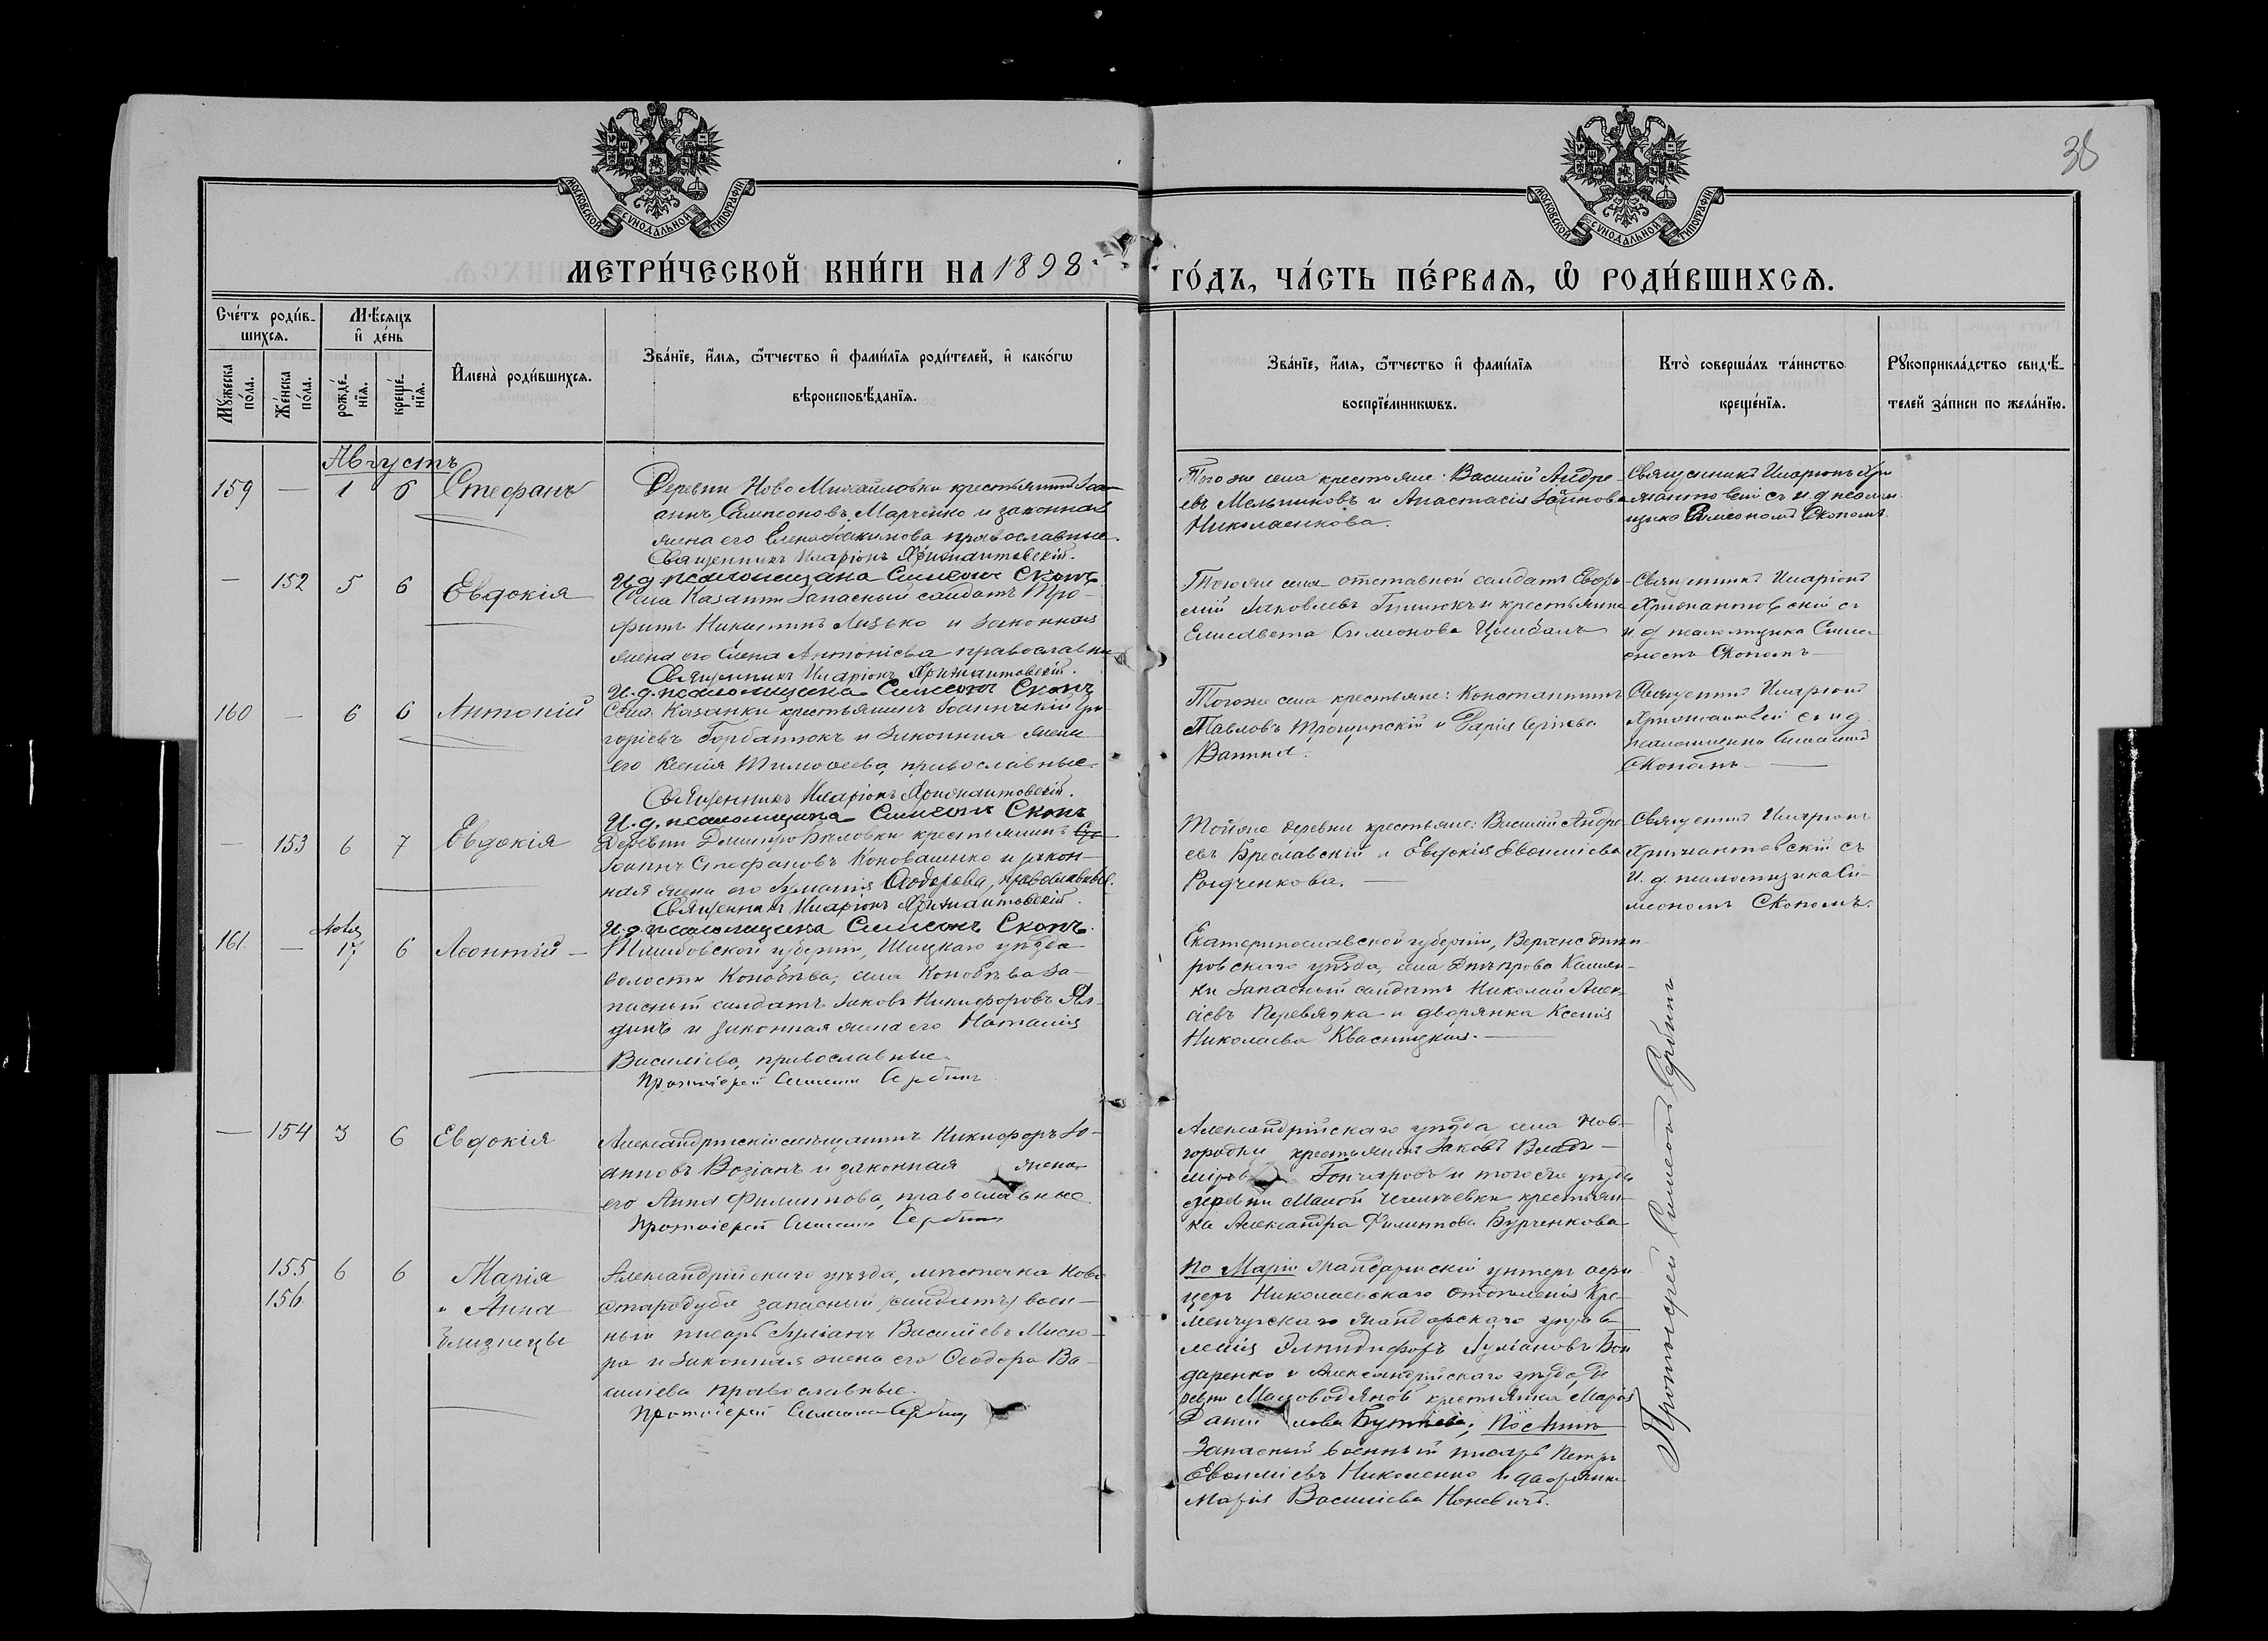 38
МОСКОВСКОЙ СѴНОДАЛЬНОЙ ТИПОГРАФІИ
МОСКОВСКОЙ СѴНОДАЛЬНОЙ ТИПОГРАФІИ
МЕТРИ́ЧЕСКОЙ КНИ́ГИ НА 1898
ГО́ДЪ, ЧА́СТЬ ПЕ́РВАѦ, Ѡ РОДИ́ВШИХСѦ.
Сче́тъ роди́в-
шихсѧ.
Мѣ́сѧцъ
и҆ де́нь
Мꙋ́жеска по́ла.
Же́нска по́ла.
рожде́-нїѧ.
креще́-нїѧ.
И҆мена̀ роди́вшихсѧ.
Зва́нїе, и҆́мѧ, ѻ҆́тчество и҆ фами́лїѧ роди́телей, и҆ како́гѡ
вѣроисповѣ́данїѧ.
Зва́нїе, и҆́мѧ, ѻ҆́тчество и҆ фами́лїѧ
воспрїе́мникѡвъ.
Кто̀ соверша́лъ та́инство
креще́нїѧ.
Рꙋкоприкла́дство свидѣ́-
телей за́писи по жела́нїю.
Августъ
159 — 1 6 Стефанъ
Деревни Ново Михайловки крестьянинъ Іоа-
аннъ Сампсоновъ Марченко и законная
жена его Елена православные.
Священникъ Иларіонъ Хрисанфовскій.
И. д. псаломщика Симеонъ Скопъ
Того же села крестьяне: Василій Андре-
евъ Мельниковъ и Анастасія
Николаенкова.
Священникъ Иларіонъ
съ и д псалом-
щика Симеономъ Скопомъ
— 152 5 6 Евдокія
Села Казанки Запасный солдатъ Тро-
фимъ Никитинъ Лизько и законная
жена его Елена Антоніева православные
Священникъ Иларіонъ Хрисанфовскій.
И. д. псаломщика Симеонъ Скопъ
Того же села отставной солдатъ Евфи-
мій Яковлевъ и крестьянка
Елисавета Симеонова Цымбалъ
Священникъ Иларіонъ
Хрисанфовскій съ
и д псаломщика Симе-
ономъ Скопомъ —
160 — 6 6 Антоній
Села Казанки крестьянинъ Іоанникій Гри-
горіевъ Горбатюкъ и законная жена
его Ксенія Тимофеева, православные
Священникъ Иларіонъ Хрисанфовскій.
И. д. псаломщика Симеонъ Скопъ
Того же села крестьяне: Константинъ
Павловъ Трощинскій и Дарія Сергіева
Ванина.
Священникъ Иларіонъ
съ и д
псаломщика Симеономъ
Скопомъ —
— 153 6 7 Евдокія
Деревни Дмитро Бѣловки крестьянинъ
Іоаннъ Стефановъ Коноваленко и закон-
ная жена его Ѳеодорова, православные.
Священникъ Иларіонъ Хрисанфовскій.
И. д. псаломщика Симеонъ Скопъ
Той же деревни крестьяне: Василій Андре-
евъ Бреславскій и Евдокія Евфиміева
Рындченкова. —
Священникъ Иларіонъ
Хрисанфовскій съ
И. д. псаломщика Си-
меономъ Скопомъ.
161 — Іюля 17 6 Леонтій —
Тамбовской губерніи, Шацкаго уѣзда
волости Конобѣва, села Конобѣва За-
пасный солдатъ Іаковъ Никифоровъ Ял-
динъ и законная жена его Наталія
Василіева, православные.
Протоіерей Симеонъ Сербинъ
Екатеринославской губерніи, Верхнеднѣп-
ровскаго уѣзда, села Днѣпрово Камен-
ки Запасный солдатъ Николай Алек-
сіевъ Перевязка и дворянка Ксенія
Николаева Квасницкая. —
— 154 3 6 Евдокія
Александрійскій мѣщанинъ Никифоръ Іо-
анновъ Возіанъ и законная жена
его Анна Филиппова, православные
Протоіерей Симеонъ Сербинъ
Александрійскаго уѣзда села Нов-
городки крестьянинъ Іаковъ Влади-
міровъ Гончаровъ и того же уѣзда
деревни Малой крестьян-
ка Александра Филиппова Бурченкова
155 6 6 Марія
156 " Анна
Близнецы
Александрійскаго уѣзда, мѣстечка Ново
Стародуба запасный (солдатъ) воен-
ный писарь Іуліанъ Василіевъ Мисю-
ра и законная жена его Ѳеодора Ва-
силіева православные.
Протоіерей Симеонъ Сербинъ
По Маріи жандармскій унтеръ офи-
церъ Николаевскаго отдѣленія Кре-
менчугскаго жандармскаго управ-
ленія Елпидифоръ Іуліановъ Бон
даренко и Александрійскаго уѣзда, де
ревни крестьянка Марія
Данилова ; По Аннѣ
Запасный военный писарь Петръ
Евфиміевъ Николенко и дворянка
Марія Василіева
Протоіерей Симеонъ Сербинъ